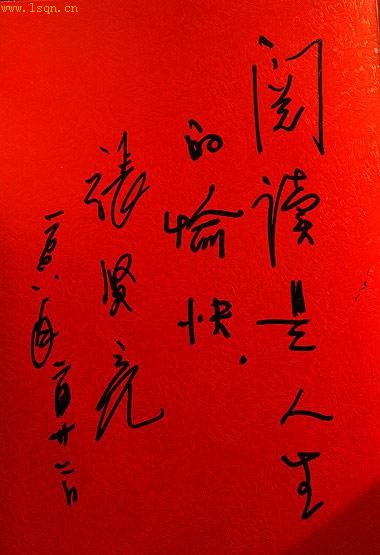 www.lsqn.cn
阅读是人生
的愉快.
张贤亮
二〇〇八年 月廿 日